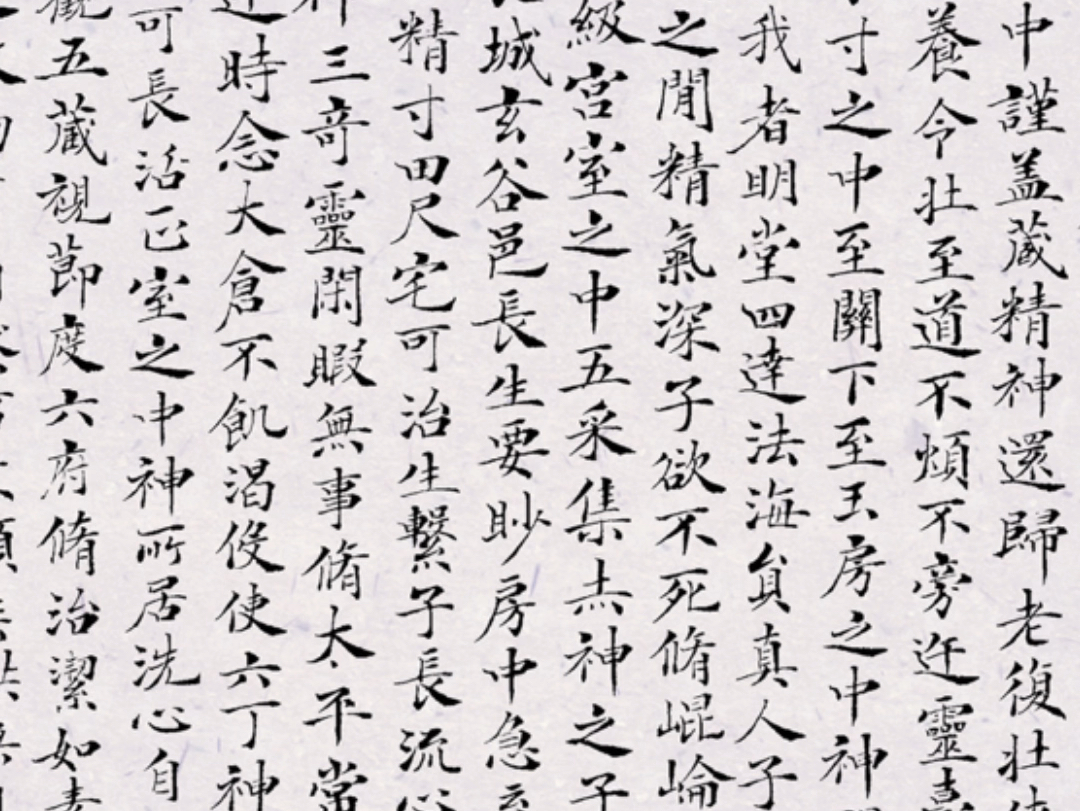 中謹盖藏精神還歸老復壯
養令壯至道不煩不旁迕靈
寸之中至關下至玉房之中神
我者明堂四達法海貟真人子
之閒精氣深子欲不死脩崐崘
級宮室之中五采集赤神之子
城玄谷邑長生要眇房中急
精寸田尺宅可治生繫子長流
三竒靈閑暇無事脩太平常
時念大倉不飢渴伇使六丁神
可長活正室之中神所居洗心自
五藏視節度六府脩治潔如